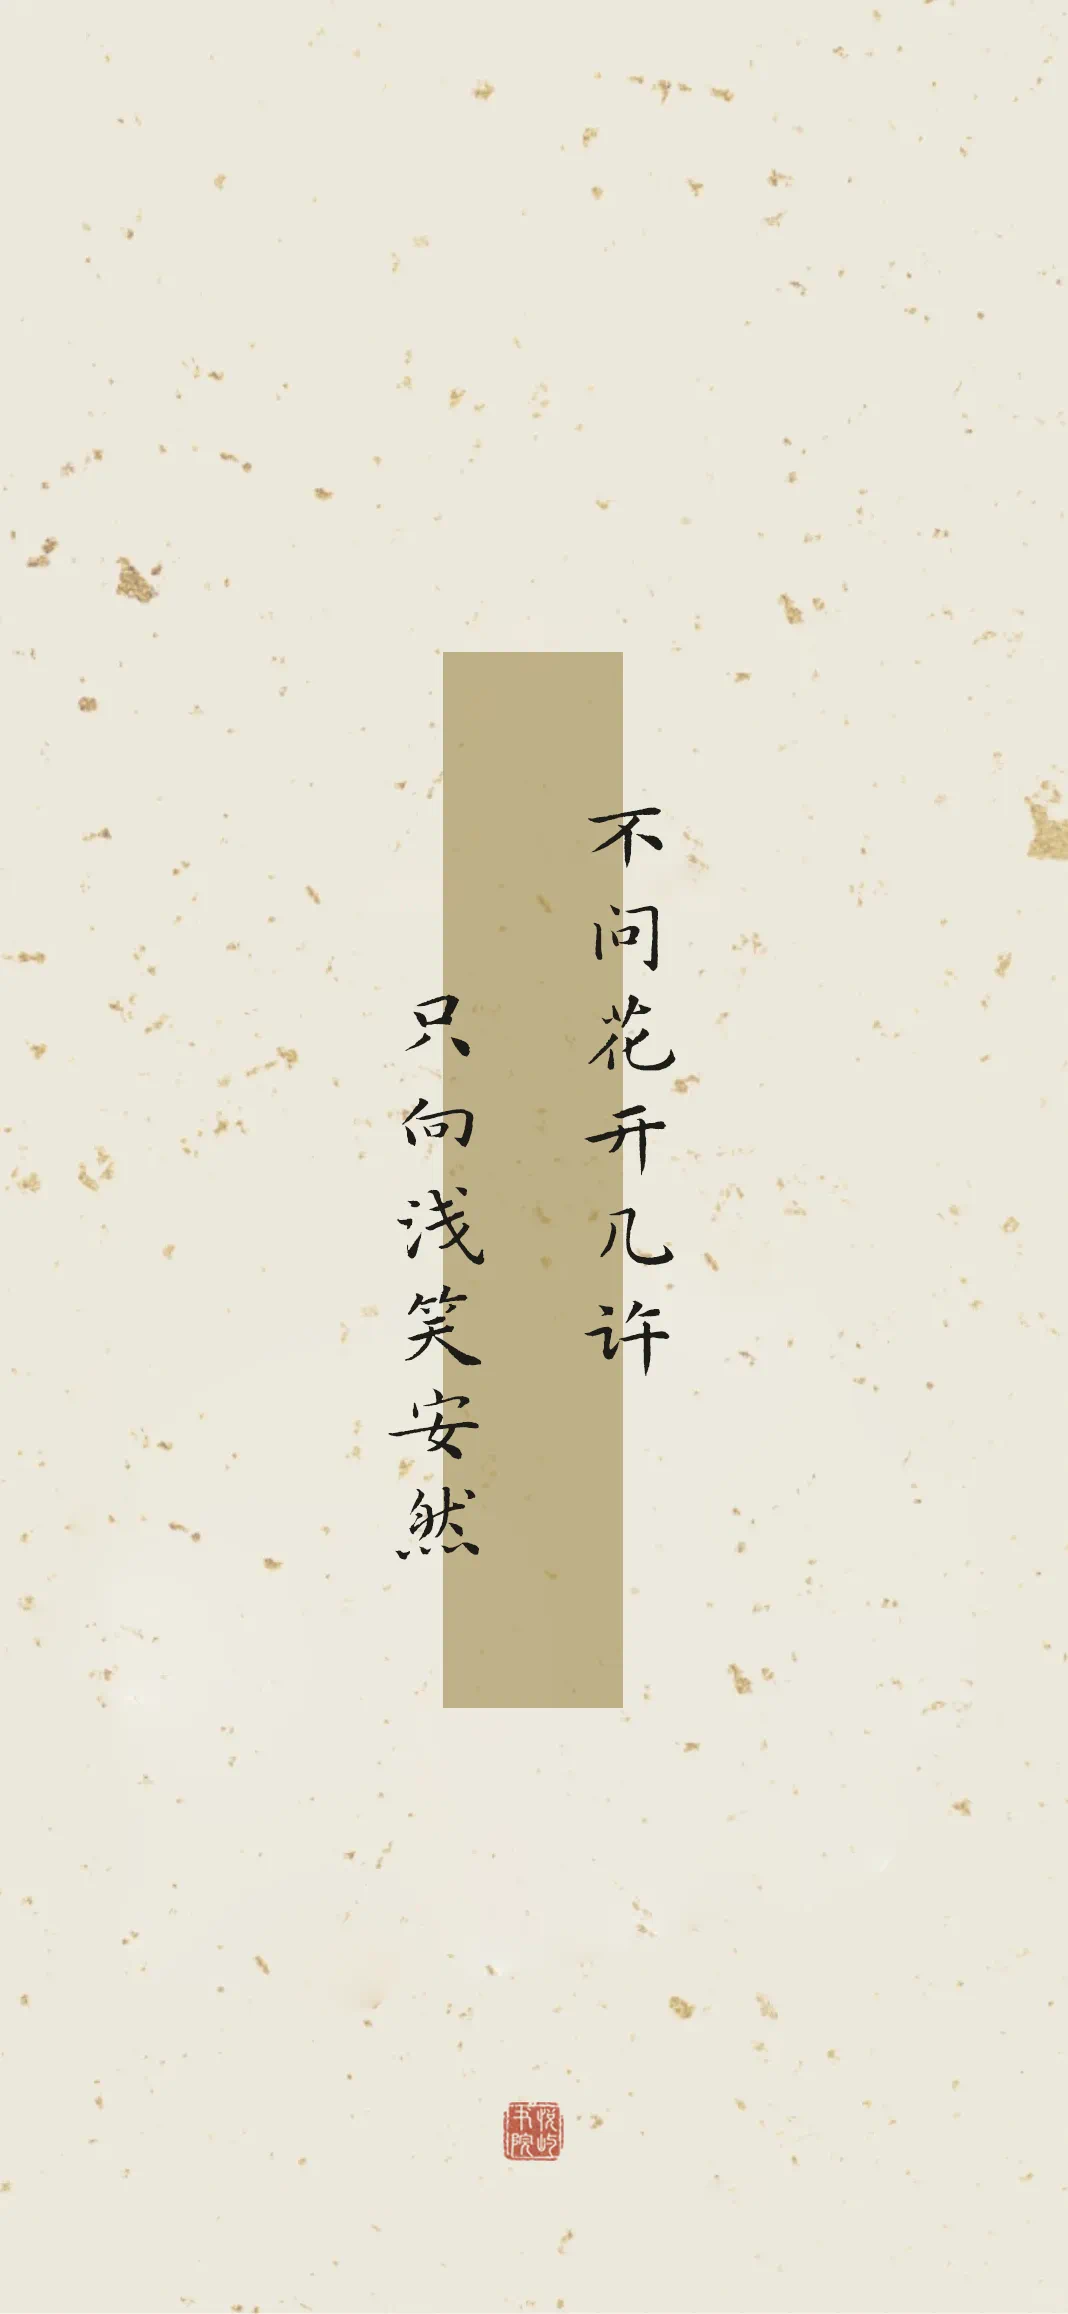 不问花开几许
只向浅笑安然
悦屿
书院